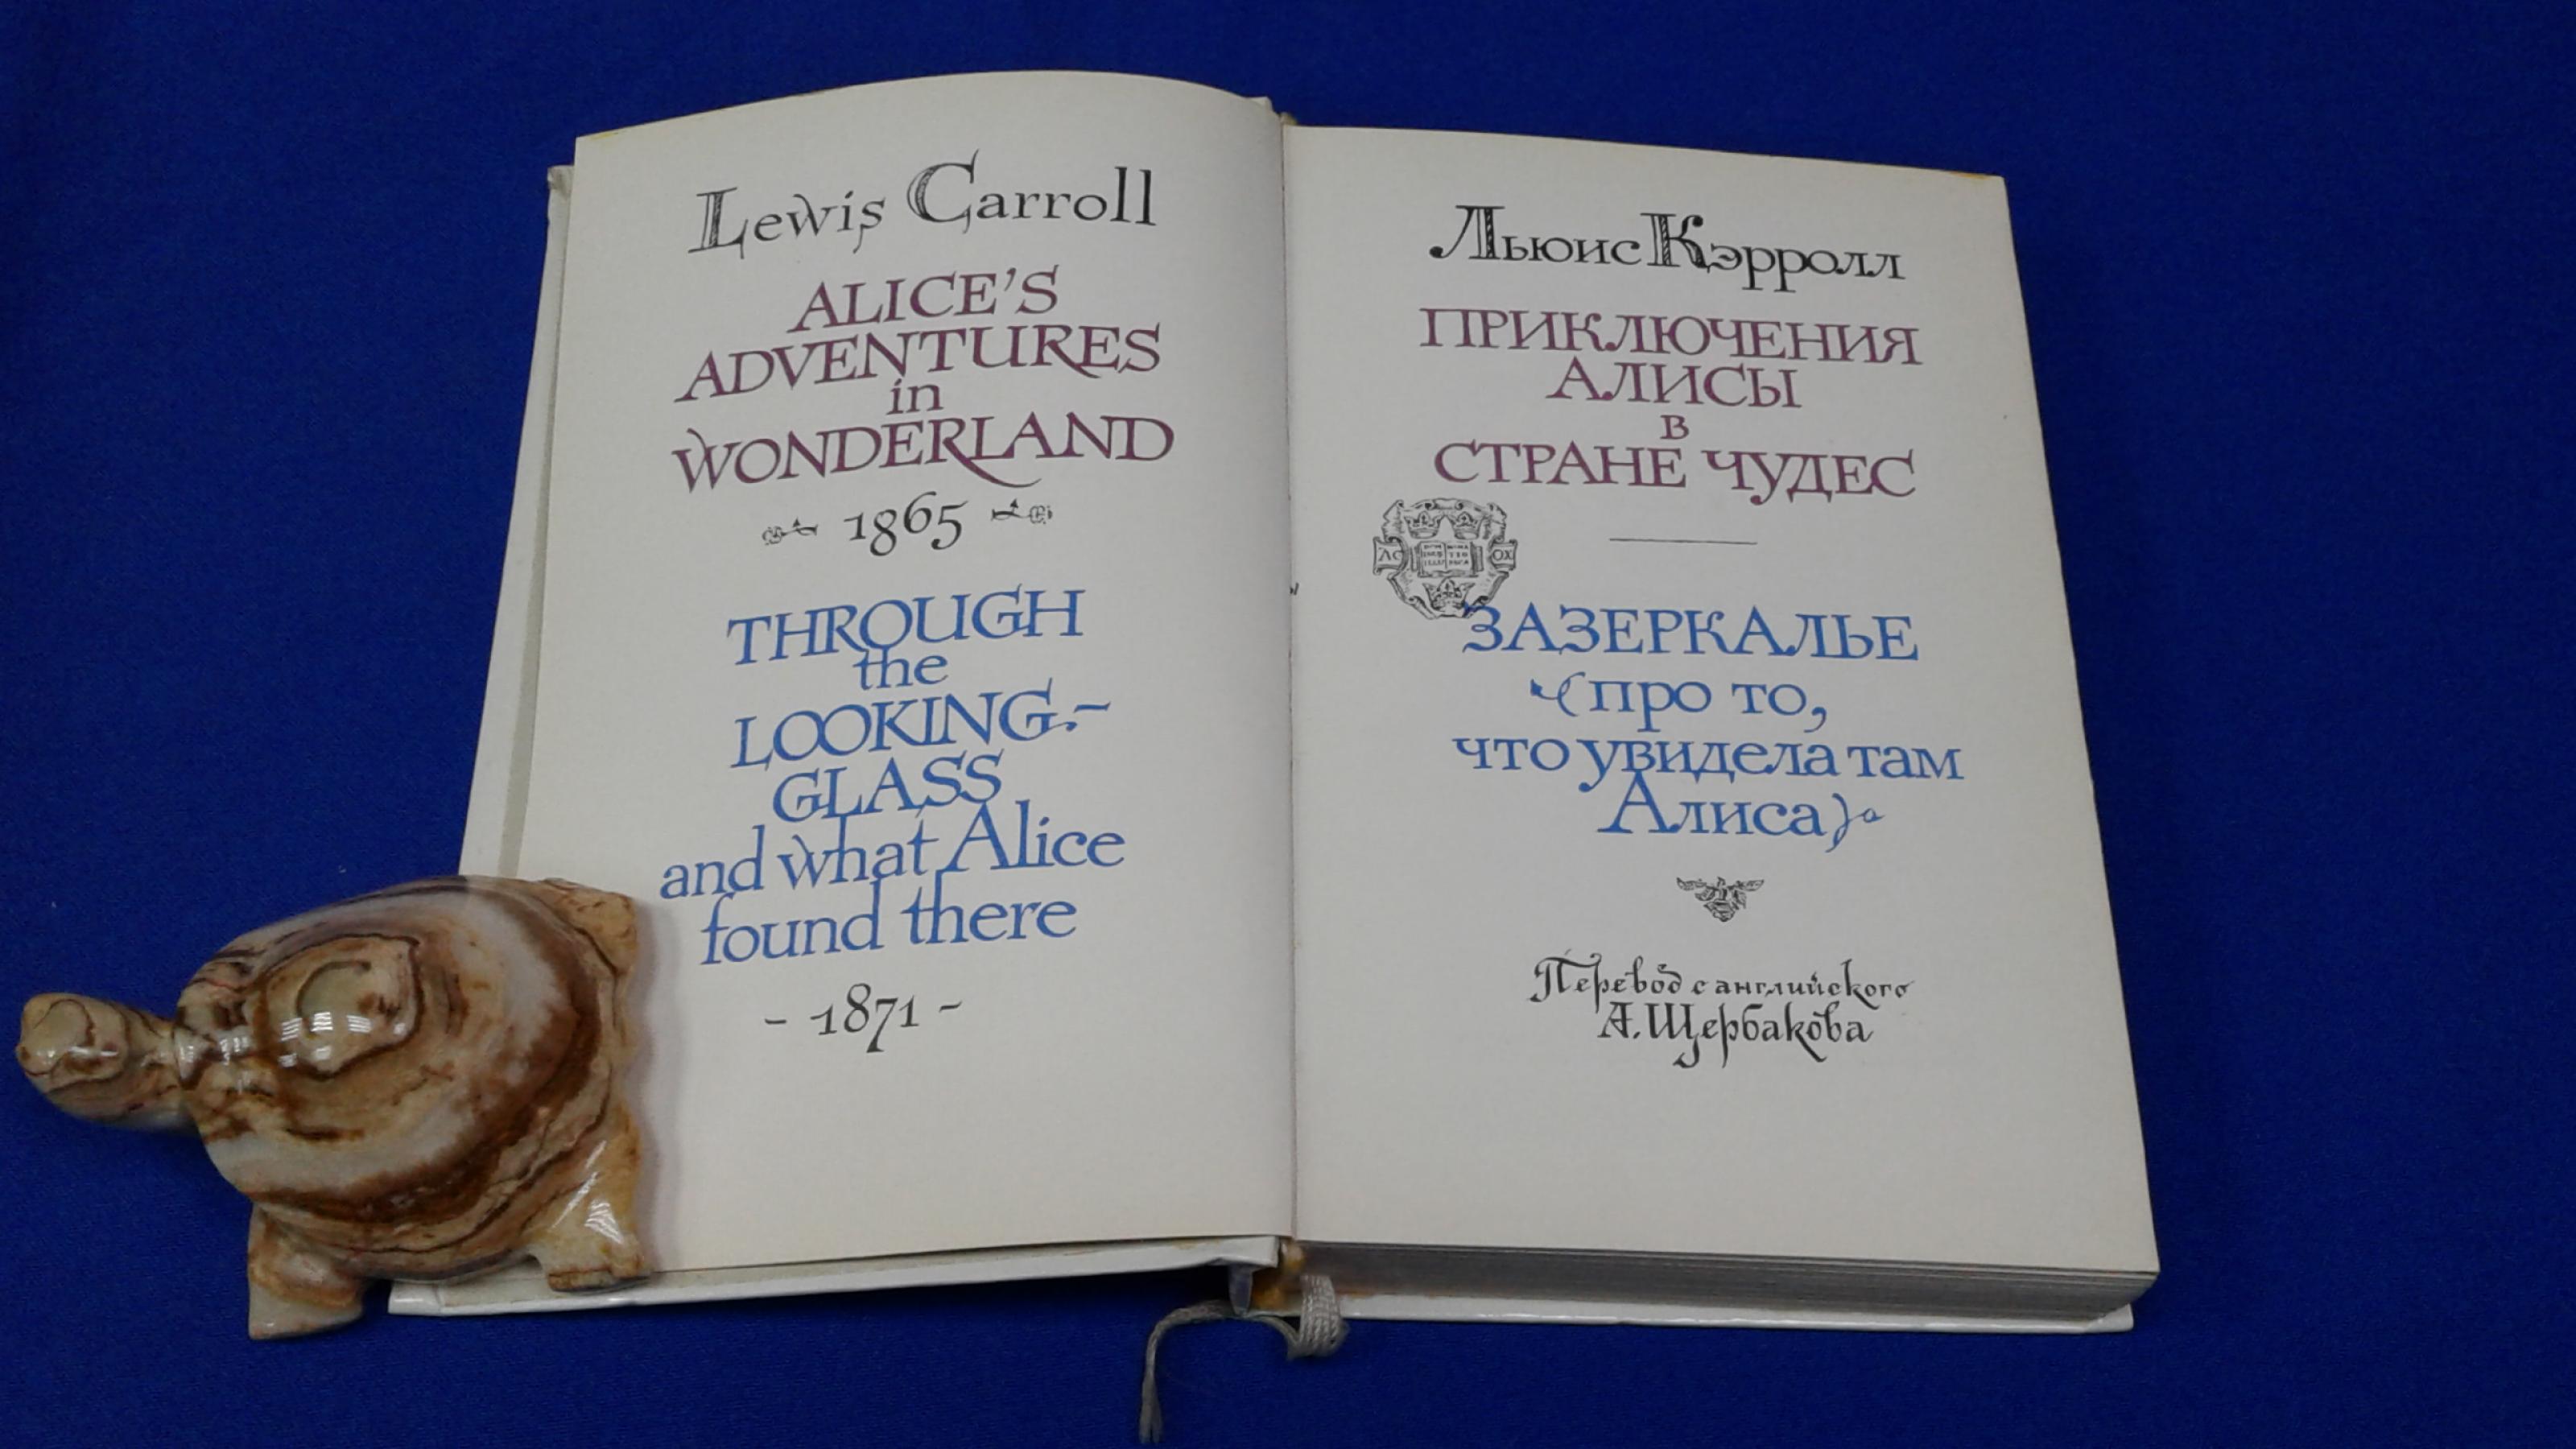 Lewis Carroll
ALICE'S
ADVENTURES
in
WONDERLAND
1865
THROUGH
the
LOOKING-
GLASS
and what Alice
found there
- 1871 -
Льюис Кэрролл
ПРИКЛЮЧЕНИЯ
АЛИСЫ
в
СТРАНЕ ЧУДЕС
AC OX
ЗАЗЕРКАЛЬЕ
(про то,
что увидела там
Алиса)
Перевод с английского
А. Щербакова